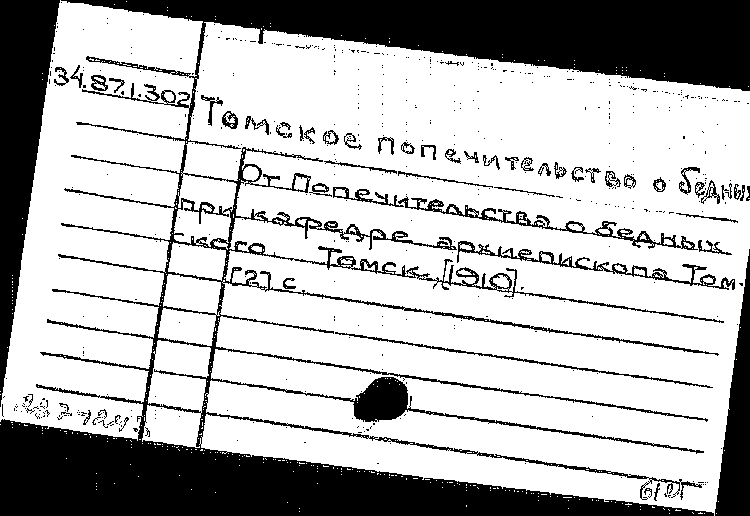 34.87.1.302
Томское попечительство о бедных
От Попечительства о бедных
при кафедре архиепископа Том-
ского. Томск, [1910].
[2] с.